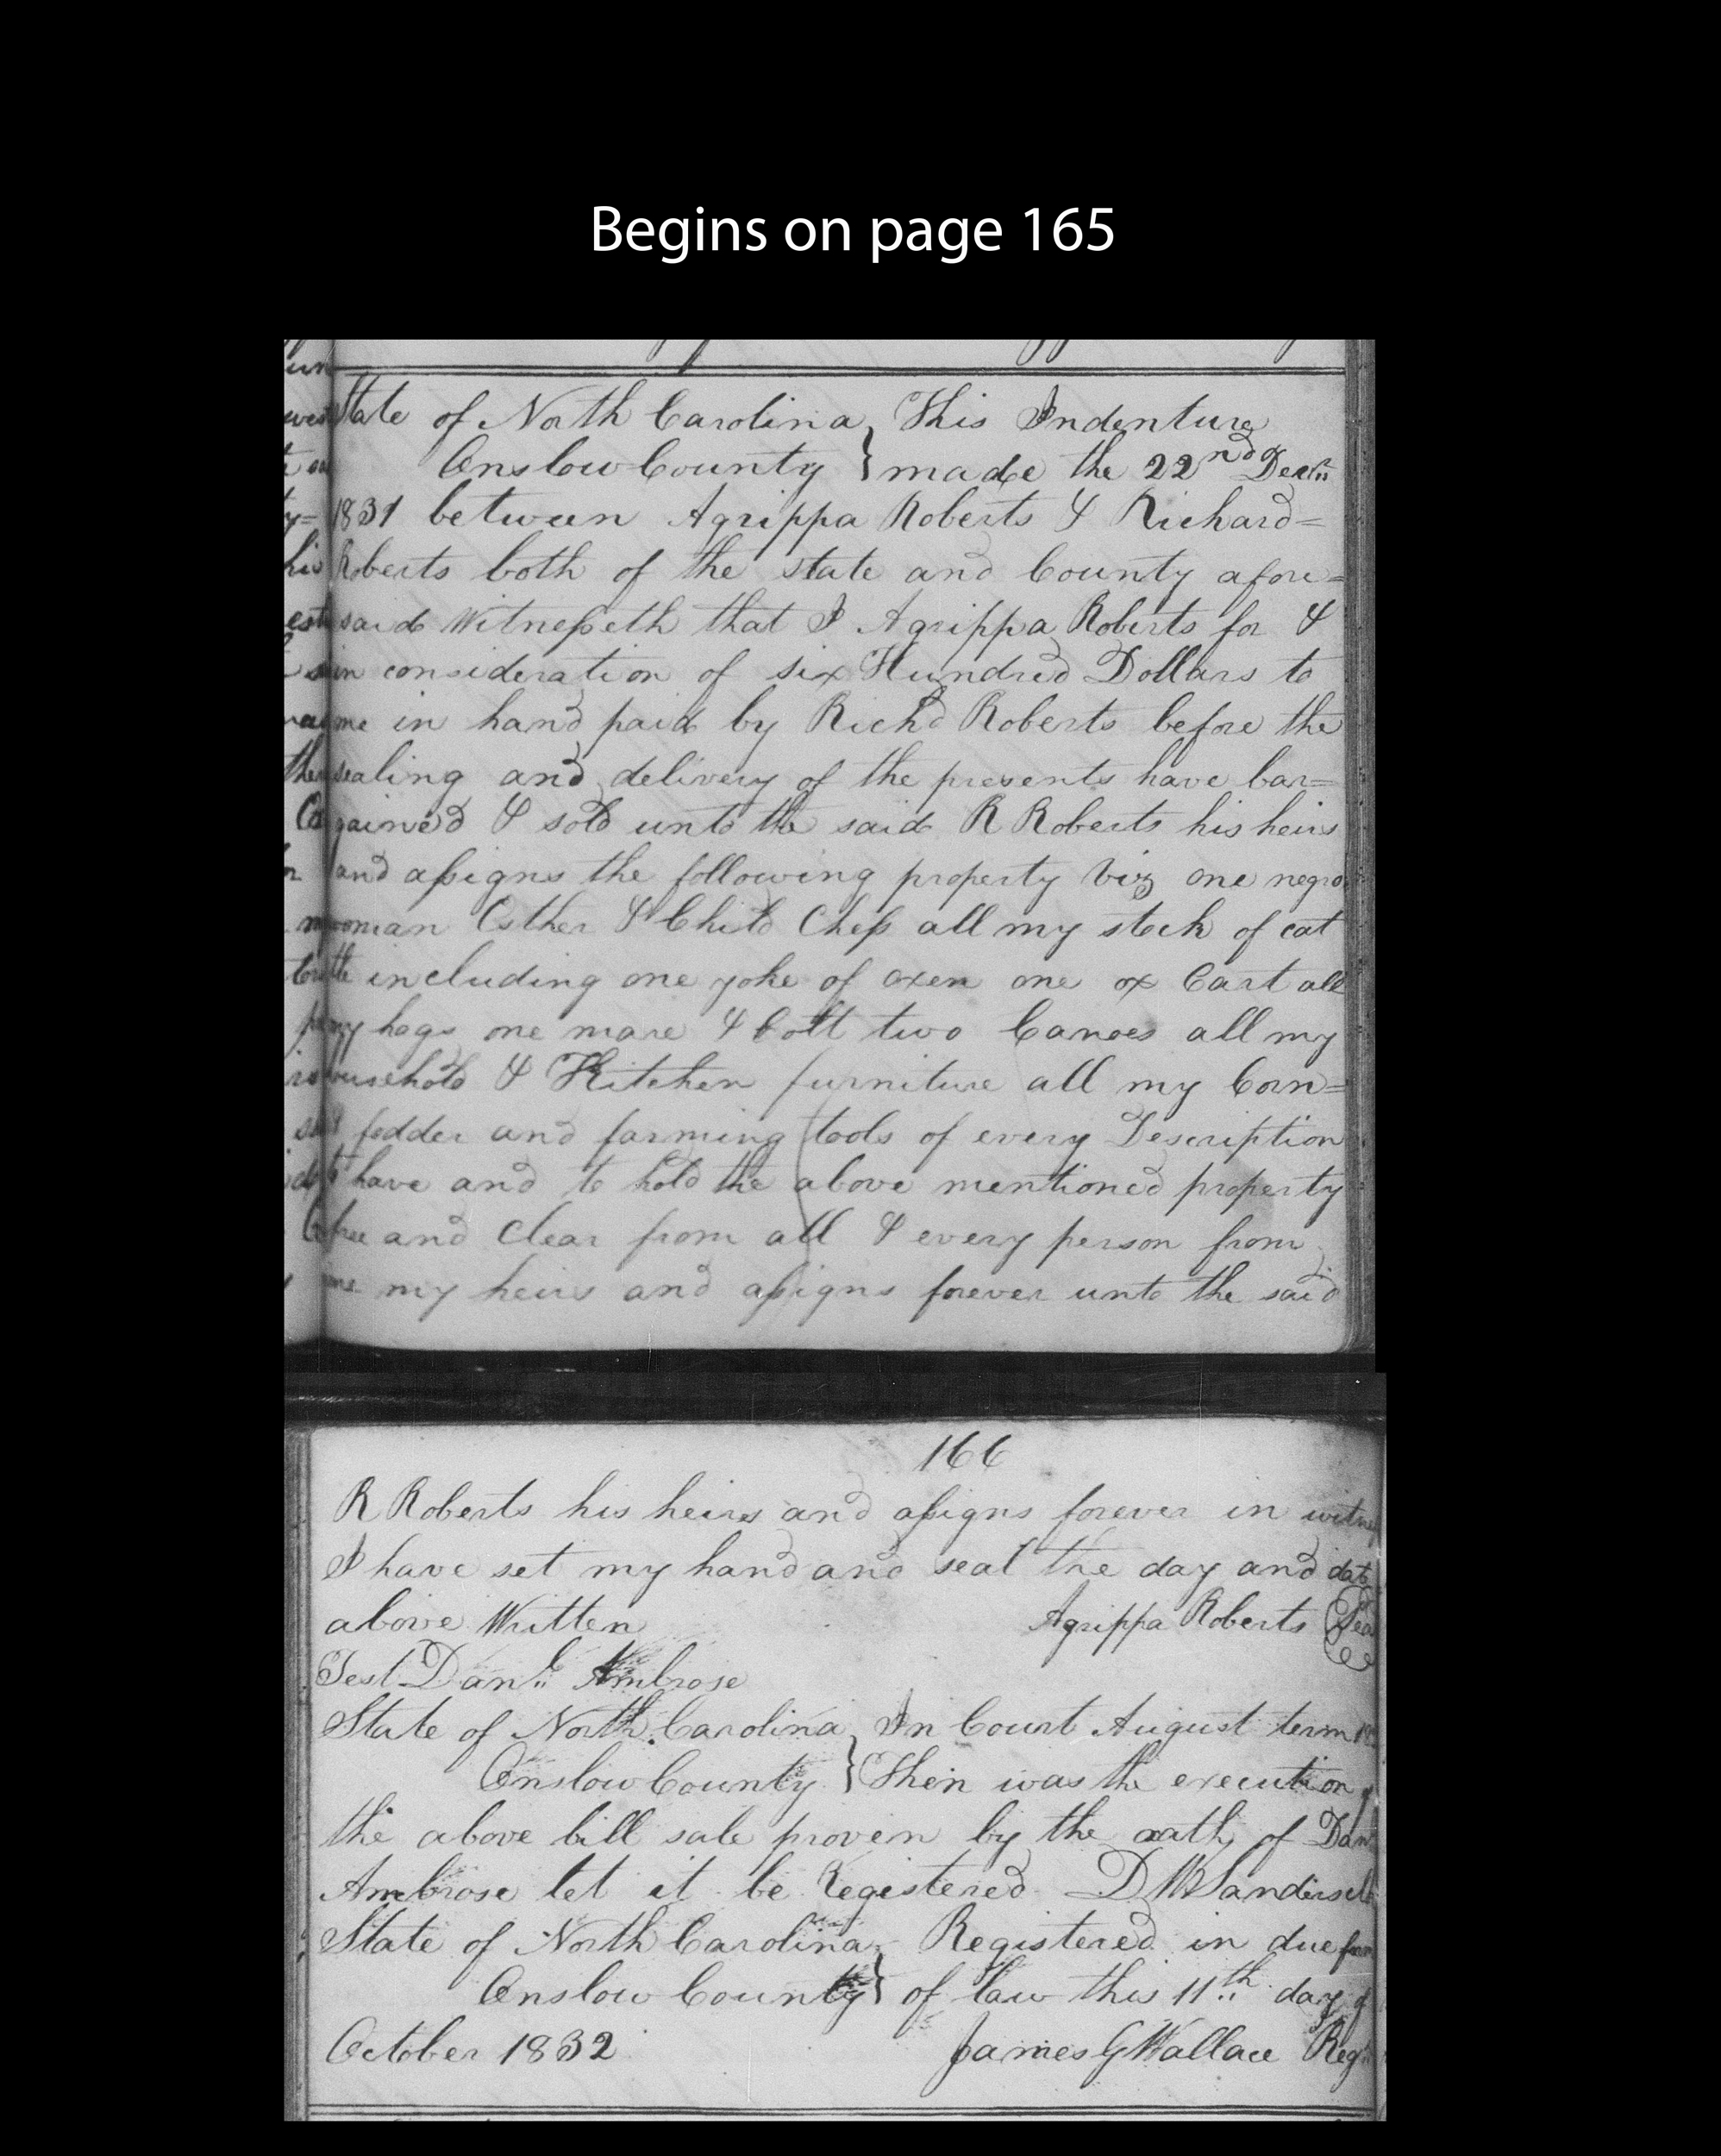 Begins on page 165
State of North Carolina } This Indenture
Onslow County } made the 22nd Decr
1831 between Agrippa Roberts & Richard=
Roberts both of the state and County afore=
said Witnesseth that I Agrippa Roberts for &
in consideration of six Hundred Dollars to
me in hand paid by Richd Roberts before the
sealing and delivery of the presents have bar=
gained & sold unto the said R Roberts his heirs
and assigns the following property viz one negro
woman Esther & Child Chess all my stock of cat
tle including one yoke of oxen one ox Cart all
my hogs one mare & Colt two Canoes all my
household & Kitchen furniture all my Corn=
fodder and farming tools of every Description
to have and to hold the above mentioned property
free and Clear from all & every person from
me my heirs and assigns forever unto the said
166
R Roberts his heirs and assigns forever in witness
I have set my hand and seal the day and date
above Written Agrippa Roberts Seal
Test Danl Ambrose
State of North Carolina } In Court August term
Onslow County } Then was the execution of
the above bill sale proven by the oath of Danl
Ambrose let it be Registered D W Sanders clk
State of North Carolina } Registered in due form
Onslow County } of law this 11th day of
October 1832 James G Wallace Regr